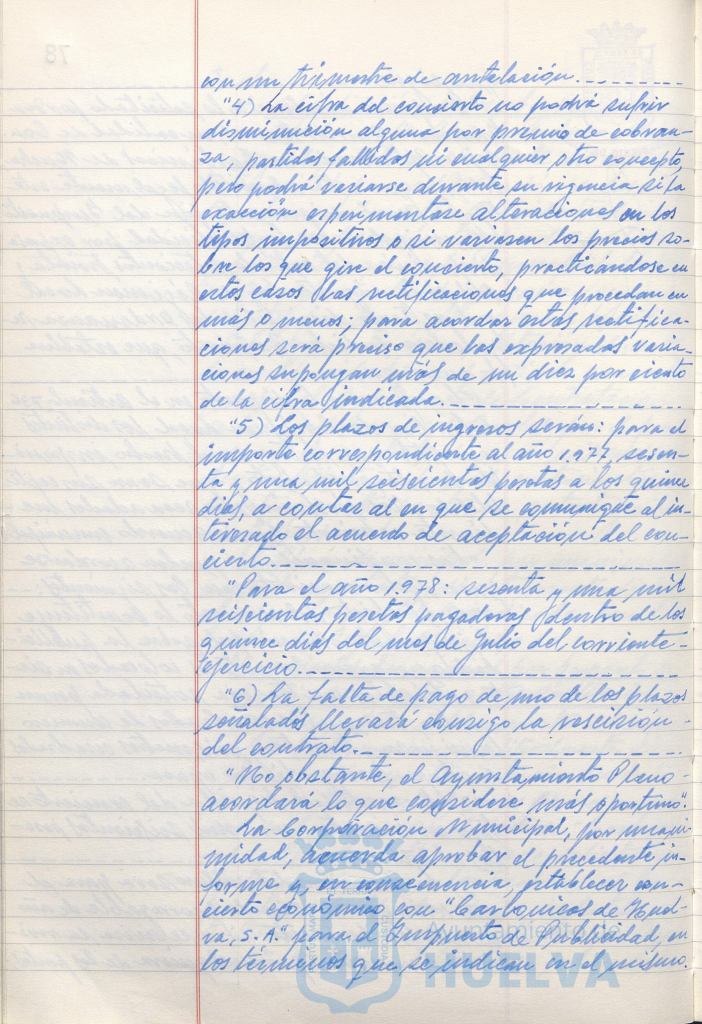 con un trimestre de antelación.
"4) La cifra del concierto no podrá sufrir
disminución alguna por premio de cobran-
za, partidas fallidas ni cualquier otro concepto,
pero podrá variarse durante su vigencia si la
exacción experimentase alteraciones en los
tipos impositivos o si variasen los precios so-
bre los que gire el concierto, practicándose en
estos casos las rectificaciones que procedan en
más o menos; para acordar estas rectifica-
ciones será preciso que las expresadas varia-
ciones supongan más de un diez por ciento
de la cifra indicada.
"5) Los plazos de ingresos serán: para el
importe correspondiente al año 1.977, sesen-
ta y una mil seiscientas pesetas a los quince
días, a contar al en que se comunique al in-
teresado el acuerdo de aceptación del con-
cierto.
"Para el año 1.978: sesenta y una mil
seiscientas pesetas pagaderas dentro de los
quince días del mes de Julio del corriente-
ejercicio.
"6) La falta de pago de uno de los plazos
señalados llevará consigo la rescisión-
del contrato.
"No obstante, el Ayuntamiento Pleno-
acordará lo que considere más oportuno".
La Corporación Municipal, por unani-
midad, acuerda aprobar el precedente in-
forme y, en consecuencia, establecer con-
cierto económico con "Carbónicas de Huel-
va, S.A." para el Impuesto de Publicidad, en
los términos que se indican en el mismo.
Ayuntamiento de
HUELVA